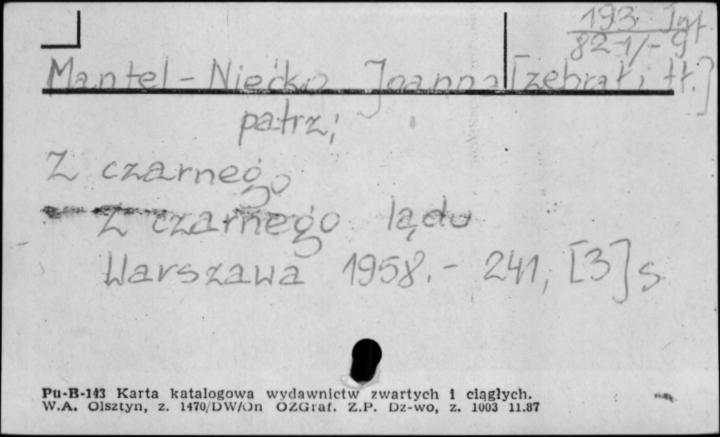 193
821/-9
Mantel-Niećko Joanna [zebrał i tł.]
patrz;
Z czarnego
Z czarnego lądu
Warszawa 1958.- 241, [3] s
Pu-B-143 Karta katalogowa wydawnictw zwartych i ciągłych.
W.A. Olsztyn, z. 1470/DW/Jn OZGraf. Z.P. Dz-wo, z. 1003 11.87